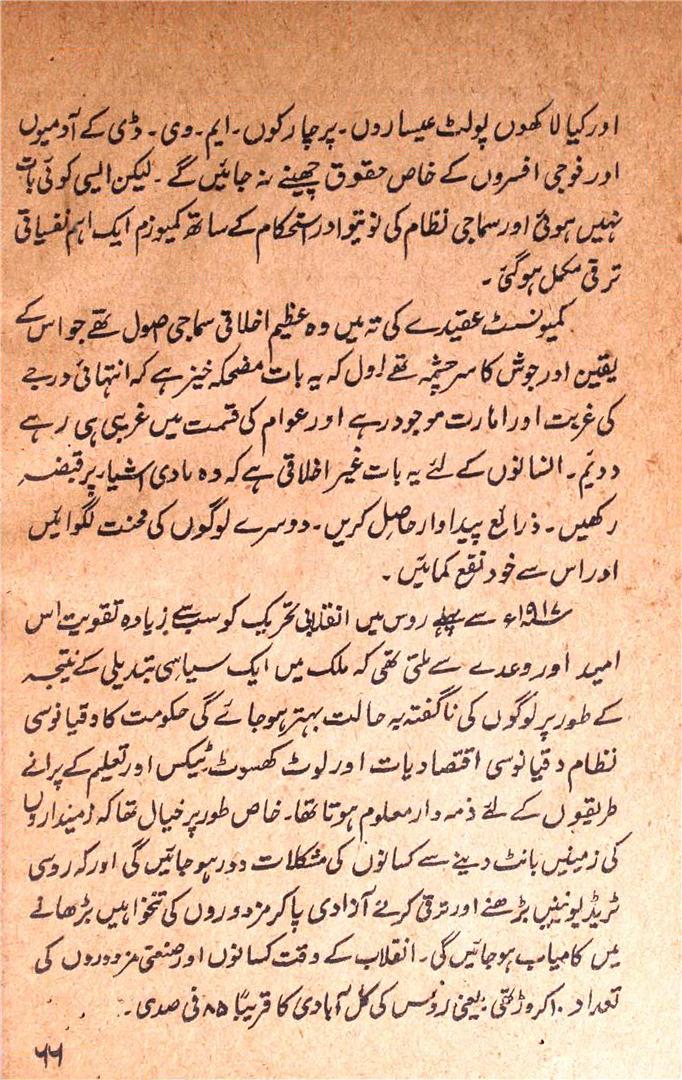 اور کیا لاکھوں پولٹ عیساروں۔ پرچارکوں۔ ایم۔ وی۔ ڈی کے آدمیوں
اور فوجی افسروں کے خاص حقوق چھینے نہ جائیں گے۔ لیکن ایسی کوئی بات
نہیں ہوئی اور سماجی نظام کی نوتیو اور استحکام کے ساتھ کمیوزم ایک اہم نفسیاتی
ترقی مکمل ہو گئی۔
کمیونسٹ عقیدے کی تہ میں وہ عظیم اخلاقی سماجی اصول تھے جو اس کے
یقین اور جوش کا سرچشمہ تھے اول کہ یہ بات مضحکہ خیز ہے کہ انتہائی درجے
کی غربت اور امارت موجود رہے اور عوام کی قسمت میں غریبی ہی رہے
دویم۔ انسانوں کے لئے یہ بات غیر اخلاقی ہے کہ وہ مادی اشیار پر قبضہ
رکھیں۔ ذرائع پیداوار حاصل کریں۔ دوسرے لوگوں کی محنت لگوائیں
اور اس سے خود نفع کمائیں۔
۱۹۱۷ء سے پہلے روس میں انقلابی تحریک کو سب سے زیادہ تقویت اس
امید اور وعدے سے ملتی تھی کہ ملک میں ایک سیاسی تبدیلی کے نتیجہ
کے طور پر لوگوں کی ناگفتہ بہ حالت بہتر ہو جائے گی حکومت کا دقیانوسی
نظام دقیانوسی اقتصادیات اور لوٹ کھسوٹ ٹیکس اور تعلیم کے پرانے
طریقوں کے لئے ذمہ دار معلوم ہوتا تھا۔ خاص طور پر خیال تھا کہ زمینداروں
کی زمینیں بانٹ دینے سے کسانوں کی مشکلات دور ہو جائیں گی اور کہ روسی
ٹریڈ یونینیں بڑھنے اور ترقی کرنے آزادی پا کر مزدوروں کی تنخواہیں بڑھانے
میں کامیاب ہو جائیں گی۔ انقلاب کے وقت کسانوں اور صنعتی مزدوروں کی
تعداد ۱۰ کروڑ تھی یعنی روس کی کل آبادی کا قریباً ۸۵ فی صدی۔
۶۶